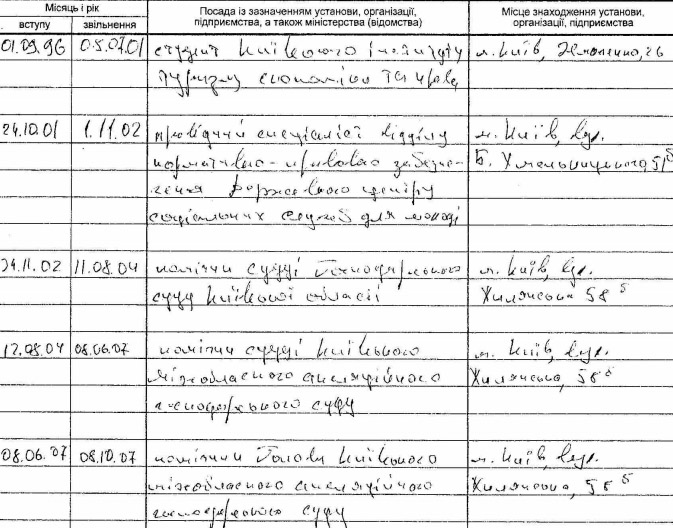 Місяць і рік
вступу
звільнення
Посада із зазначенням установи, організації,
підприємства, а також міністерства (відомства)
Місце знаходження установи,
організації, підприємства
01.09.96 05.07.01 студент Київського інституту м. Київ, 26
туризму економіки та права
24.10.01 1.11.02 провідний спеціаліст відділу м. Київ, вул.
нормативно-правового забезпе- Б. Хмельницького 51б
чення Державного центру
соціальних служб для молоді
24.11.02 11.08.04 помічник судді Господарського м. Київ, вул.
суду Київської області Жилянська 58 б
12.08.04 08.06.07 помічник судді Київського м. Київ, вул.
міжобласного апеляційного Жилянська, 58б
господарського суду
08.06.07 08.10.07 помічник Голови Київського м. Київ, вул.
міжобласного апеляційного Жилянська, 58 б
господарського суду